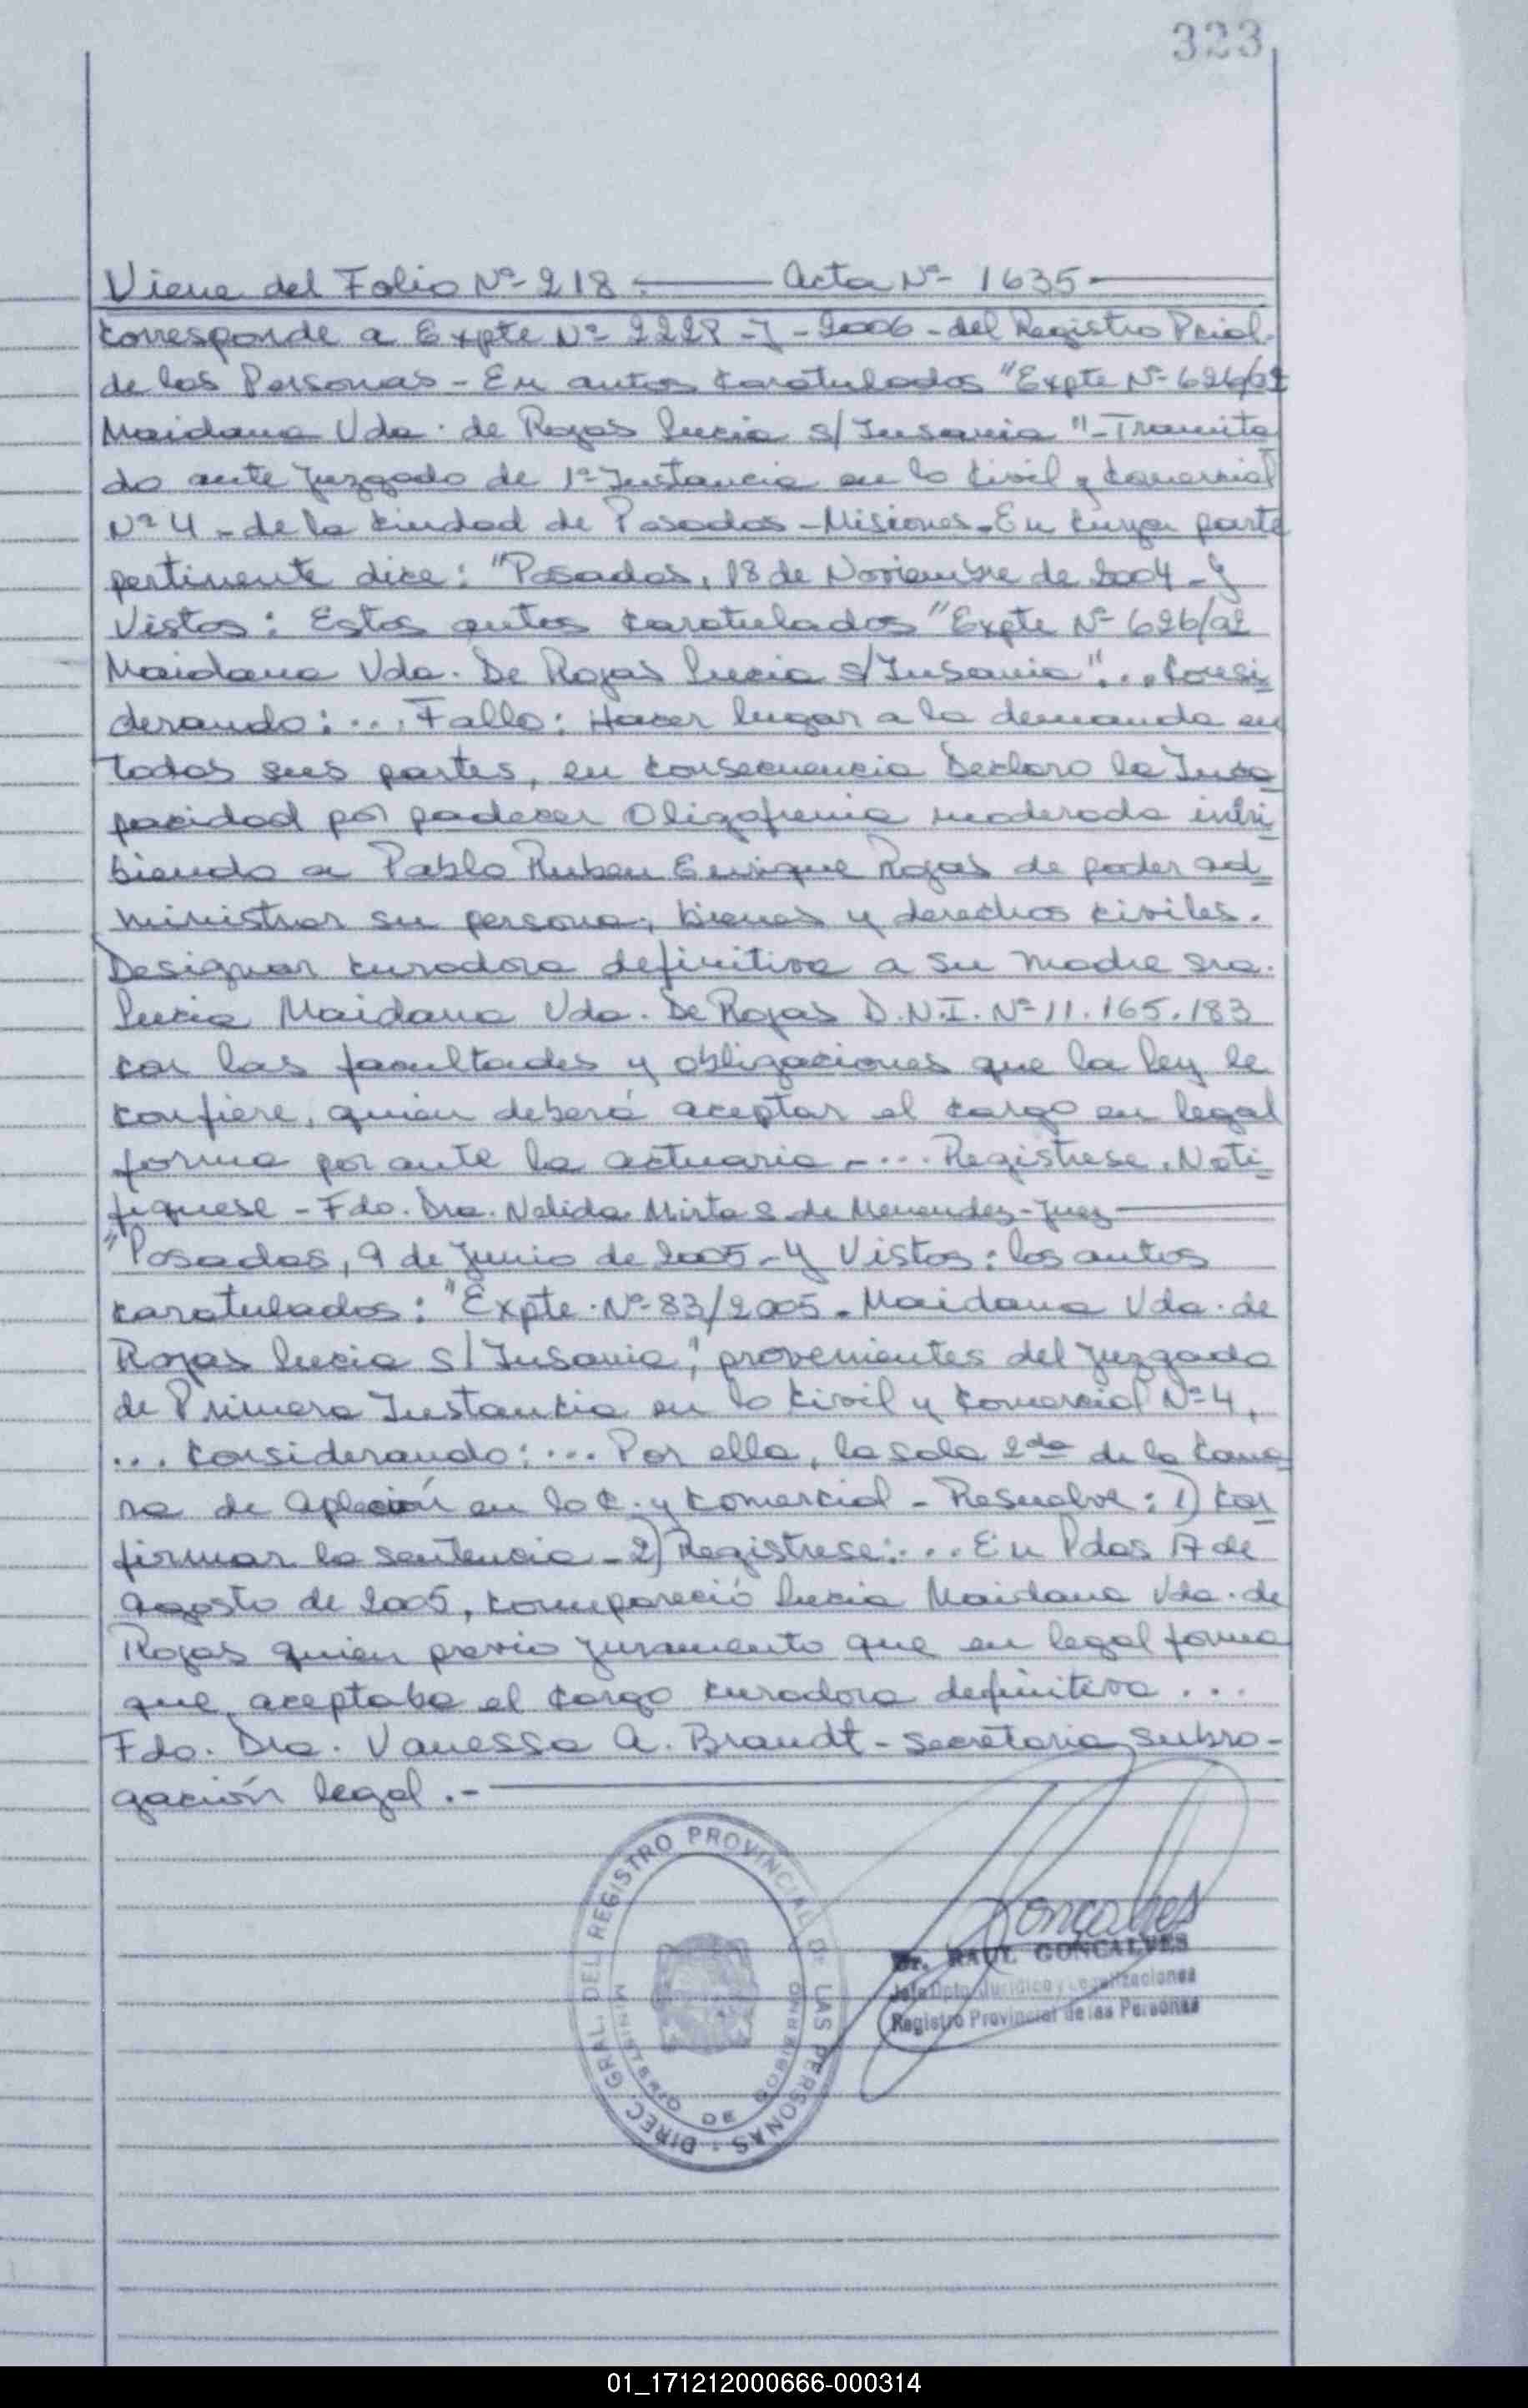 323
Viene del Folio Nº 218.——— Acta Nº 1635———
corresponde a Expte Nº 2228-J-2006-del Registro Pcial.
de las Personas - En autos caratulados "Expte Nº 626/02
Maidana Vda. de Rojas Lucia s/ Insania" - Tramita
do ante Juzgado de 1ª Instancia en lo Civil y Comercial
Nº 4 - de la ciudad de Posadas - Misiones. En cuya parte
pertinente dice: "Posadas, 18 de Noviembre de 2004 - Y
Vistos: Estos autos caratulados "Expte Nº 626/02
Maidana Vda. De Rojas Lucia s/ Insania"... Consi
derando: ... Fallo: Hacer lugar a la demanda en
todas sus partes, en consecuencia Declaro la Inca
pacidad por padecer Oligofrenia moderada inhi
biendo a Pablo Ruben Enrique Rojas de poder ad
ministrar su persona, bienes y derechos civiles.
Designar curadora definitiva a su madre sra.
Lucia Maidana Vda. De Rojas D.N.I. Nº 11.165.183
con las facultades y obligaciones que la ley le
confiere, quien deberá aceptar el cargo en legal
forma por ante la actuaria - ... Registrese. Noti
fiquese - Fdo. Dra. Nelida Mirta S. de Menendez - Juez———
"Posadas, 9 de Junio de 2005 - Y Vistos: los autos
caratulados: "Expte. Nº 83/2005 - Maidana Vda. de
Rojas Lucia s/ Insania", provenientes del Juzgado
de Primera Instancia en lo Civil y Comercial Nº 4,
... considerando: ... Por ello, la sala 2da de la Cama
ra de Aplación en lo C. y Comercial - Resuelve: 1) Con
firmar la sentencia - 2) Registrese: ... En Pdas 17 de
agosto de 2005, compareció Lucia Maidana Vda. de
Rojas quien previo juramento que en legal forma
que aceptaba el cargo curadora definitiva ...
Fdo. Dra. Vanessa A. Brandt - Secretaria subro-
gación legal .-———
DIREC. GRAL. DEL REGISTRO PROVINCIAL DE LAS PERSONAS
MINISTERIO DE GOBIERNO
Goncalves
Dr. RAUL GONCALVES
Jefe Dpto. Jurídico y Legalizaciones
Registro Provincial de las Personas
01_171212000666-000314